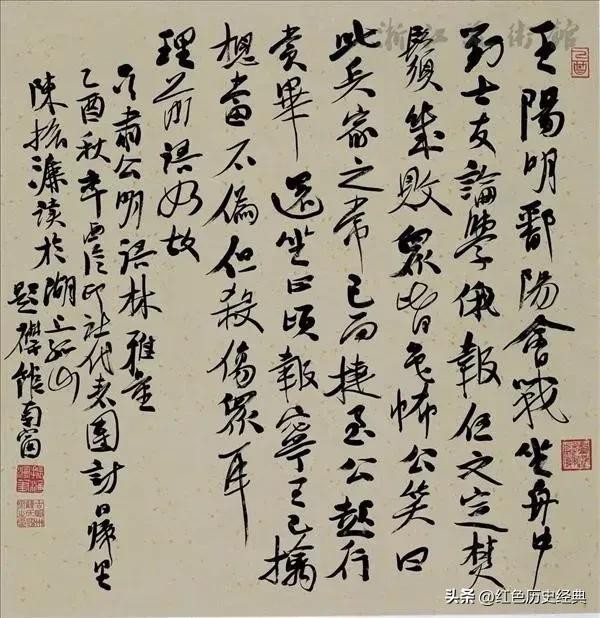 王陽明鄱陽會戰坐舟中
對士友論學俄報伍文定焚
鬚幾敗眾皆色怖公笑曰
此兵家之常已而捷至公起行
賞畢還坐曰頃報寧王已擒
想當不偽但殺傷眾耳
理前語如故
吳肅公明語林雅量
乙酉秋率西泠印社代表團訪日歸里
陳振濂讀於湖上孤山
題襟館南窗
乙酉
浙江美術館
头条 @红色历史经典